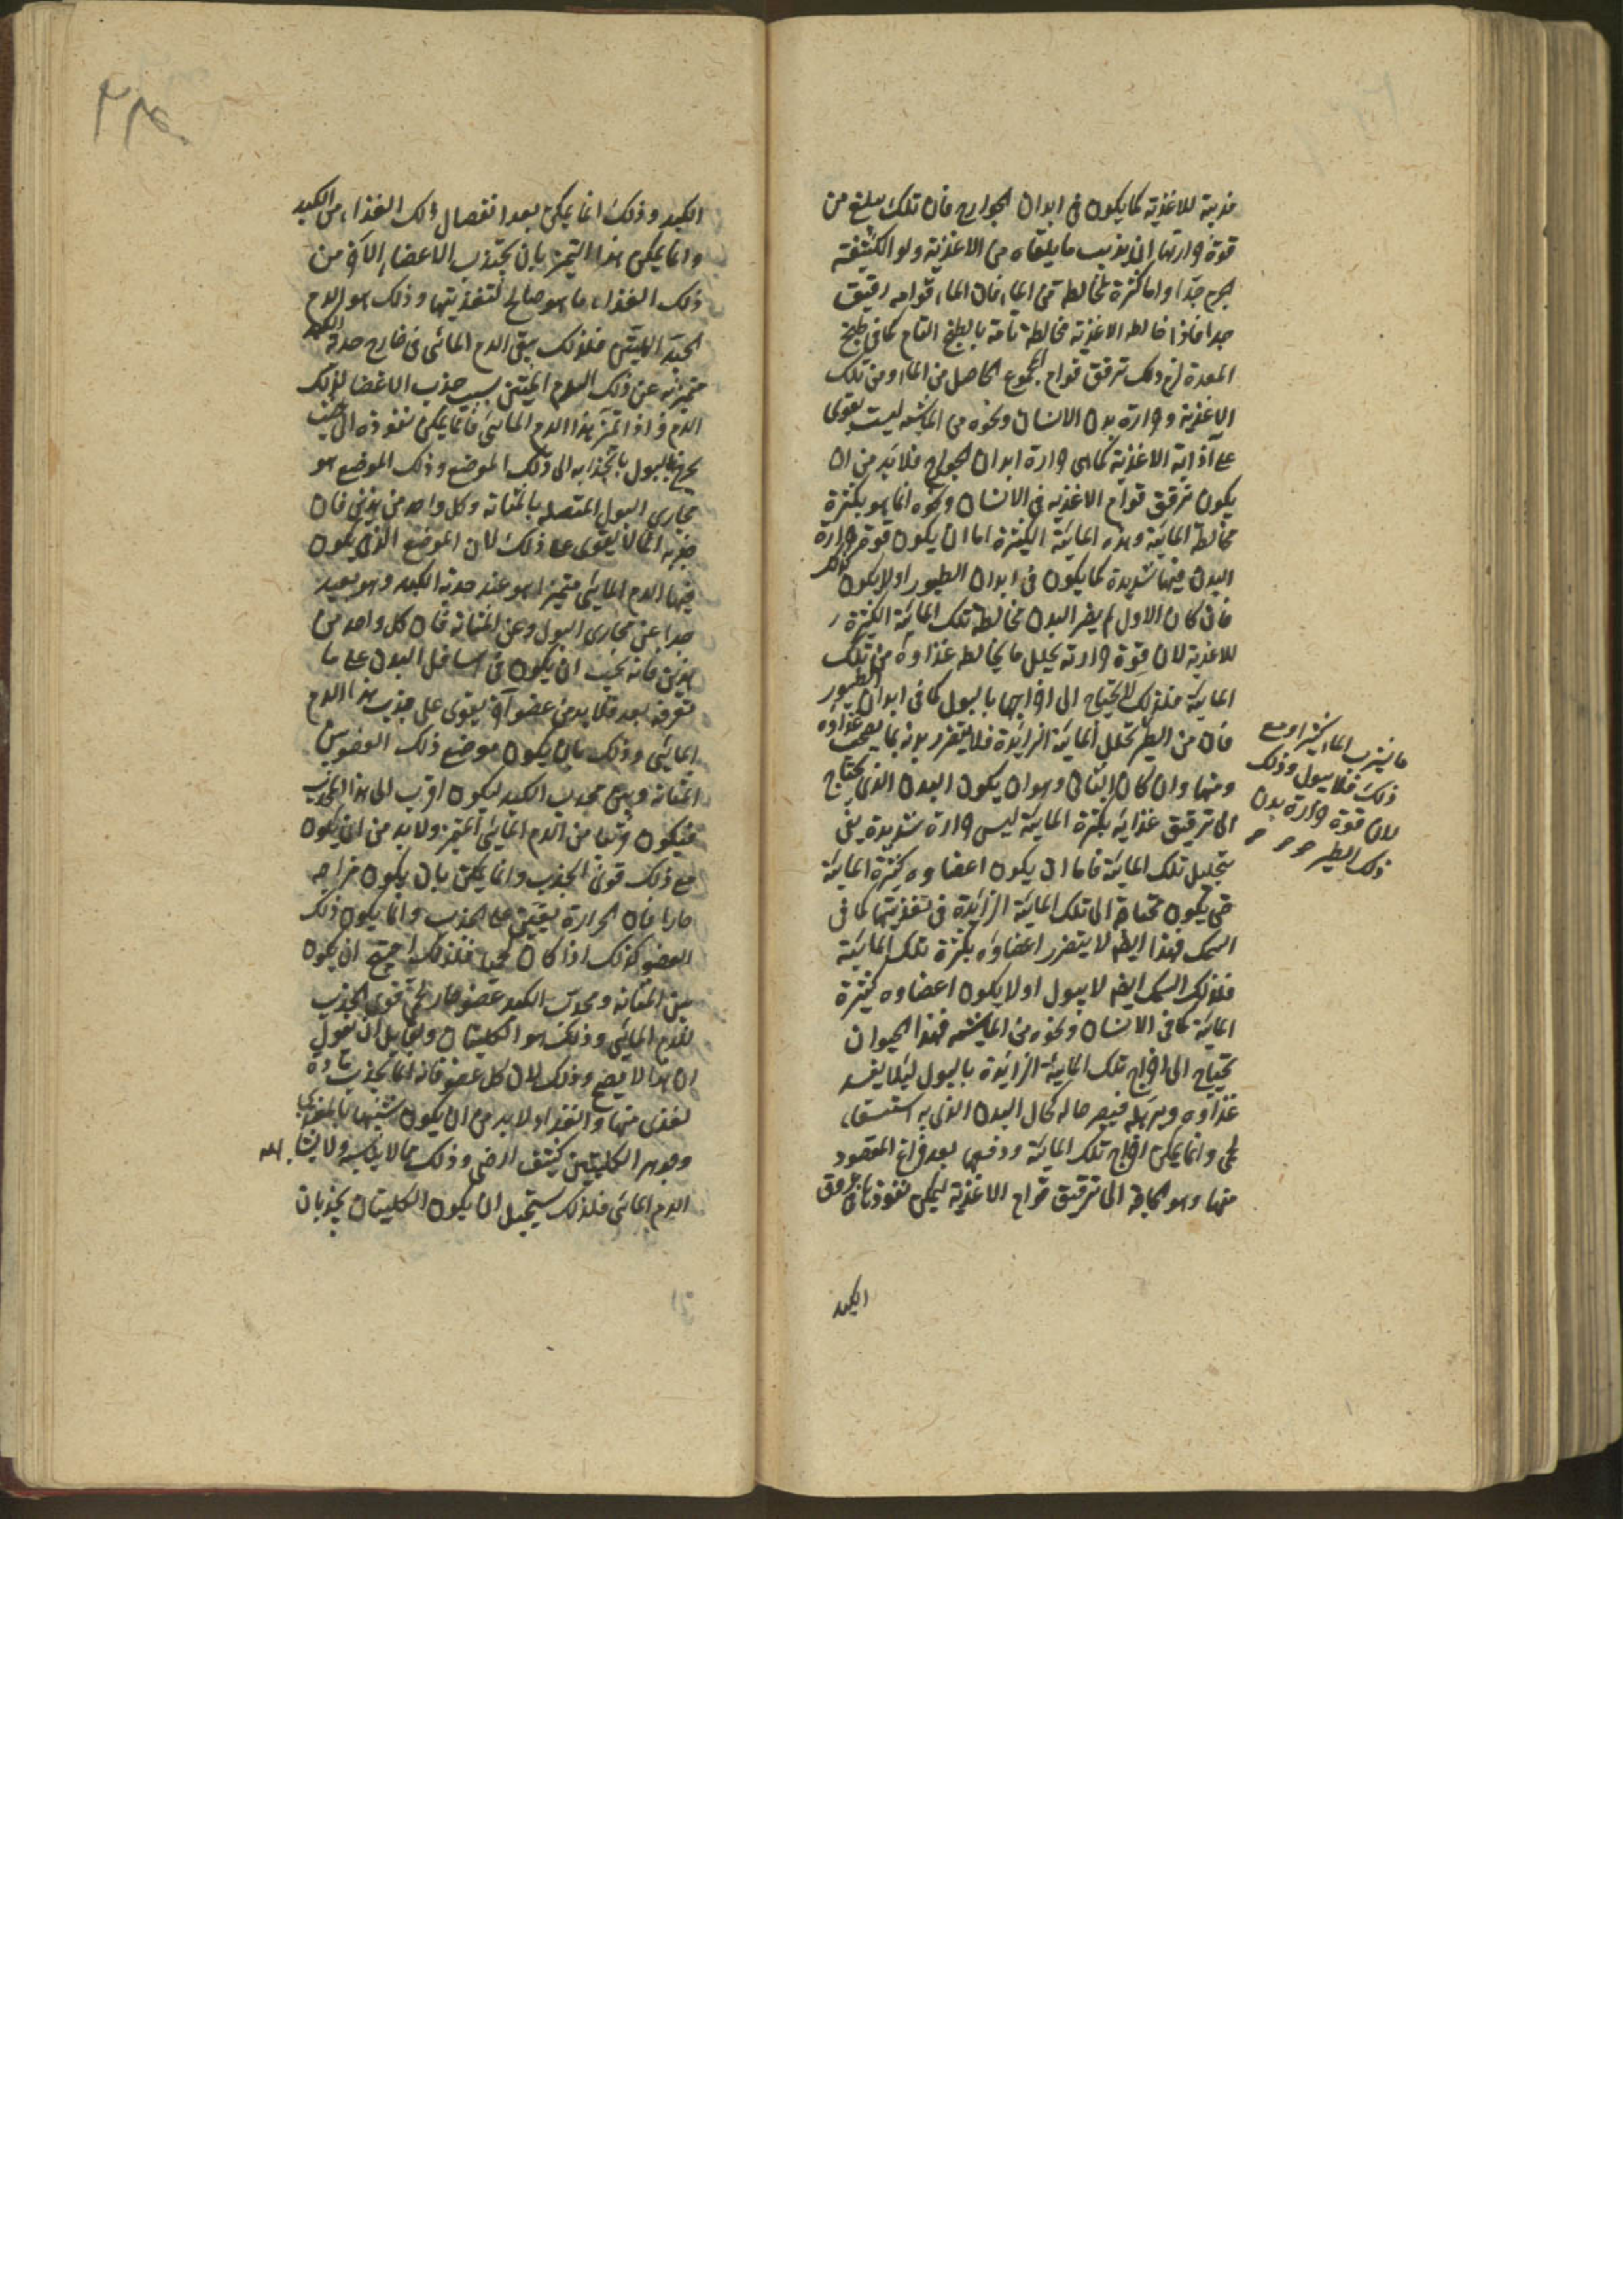 مذيبة للاغذية كما يكون فى ابدان الجوارح فان تلك يبلغ من
قوة حرارتها ان يذيب ما يلقاه من الاغذية ولو الكثيفة
الجرم جدا واما كثرة مخالطة من الماء فان الماء قوامه رقيق
جدا فاذا خالط الاغذية مخالطة تامة بالطبخ التام كما فى طبخ
المعدة لزم ذلك ترقق قوام المجموع الحاصل من الماء ومن تلك
الاغذية وحرارة بدن الانسان ونحوه من الماشية ليست بقوى
على اذابة الاغذية كما هى حرارة ابدان الجوارح فلا بد من ان
يكون ترقق قوام الاغذيه فى الانسان ونحوه انما هو بكثرة
مخالطة المائية وهذه المائية الكثيرة اما ان يكون قوة حرارة
البدن فيها شديدة كما يكون فى ابدان الطيور او لا يكون كذلك
فان كان الاول لم يضر البدن مخالطة تلك المائية الكثيرة
للاغذية لان قوة حرارته يحلل ما يخالط غذاوه من تلك
المائية فلذلك لا يحتاج الى اخراجها بالبول كما فى ابدان الطيور
فان من الطير تحلل المائية الزايدة فلا يتضرر بدنه بما يصحب غذاوه
ومنها وان كان الثانى وهو ان يكون البدن الذى يحتاج
الى ترقيق غذايه بكثرة المائية ليس حرارة شديدة يفى
بتحليل تلك المائية فاما ان يكون اعضاوه كثيرة المائية
حتى يكون محتاجة الى تلك المائية الزايدة فى تغذيتها كما فى
السمك فهذا ايضا لا يتضرر اعضاوه بكثرة تلك المائية
فلذلك السمك ايضا لا يبول او لا يكون اعضاوه كثيرة
المائية كما فى الانسان ونحوه من الماشيه فهذا الحيوان
يحتاج الى اخراج تلك المائية الزايدة بالبول ليلا يفسد
غذاوه ويرهله فيصير حاله كحال البدن الذى به استسقاء
لحمى وانما يمكن اخراج تلك المائية ودفعها بعد فراغ المقصود
منها وهو الحاجة الى ترقيق قوام الاغذية ليمكن نفوذها فى عروق
الكبد
ما يشرب الماء كثيرا ومع
ذلك فلا يبول وذلك
لان قوة حرارة بدن
ذلك الطير
الكبد وذلك انما يمكن بعد انفصال ذلك الغذاء من الكبد
وانما يمكن هذا التميز بان يجتذب الاعضاء الاخر من
ذلك الغذاء ما هو صالح لتغذيتها وذلك هو الدم
الجيد المتين فلذلك يبقى الدم المائى فى خارج حدبة الكبد
متميزا عن ذلك الدم المتين بسبب جذب الاعضا لذلك
الدم واذا تميز هذا الدم المائى فانما يمكن نفوذه الى حيث
يخرج بالبول بانجذابه الى ذلك الموضع وذلك الموضع هو
مجارى البول المتصله بالمثانة وكل واحد من هذين فان
جذبه مما لا يقوى على ذلك لان الموضع الذى يكون
فيها الدم المائى متميزا هو عند حدبة الكبد وهو بعيد
جدا عن مجارى البول وعن المثانة فان كل واحد من
هذين فانه يجب ان يكون فى اسافل البدن على ما
تعرفه بعد فلا بد من عضو آخر يقوى على جذب هذا الدم
المائى وذلك بان يكون موضع ذلك العضو بين
المثانة وبين محدب الكبد ليكون اقرب الى هذا المحدب
فيكون قريبا من الدم المائى المتميز ولا بد من ان يكون
مع ذلك قوى الجذب وانما يمكن بان يكون مزاجه
حارا فان الحرارة يعين على الجذب وانما يكون ذلك
العضو كذلك اذا كان لحميا فلذلك احتيج ان يكون
بين المثانة ومحدب الكبد عضو حار لحمى قوى الجذب
للدم المائى وذلك هو الكليتان ولقايل ان يقول
ان هذا لا يصح وذلك لان كل عضو فانه انما يجذب مادة
تغذى منها والغذاء لا بد من ان يكون شبيها بالمغتذى
وجوهر الكليتين كثيف ارضى وذلك مما لا يناسبه ولا يشابهه
الدم المائى فلذلك يستحيل ان يكون الكليتان يجذبان